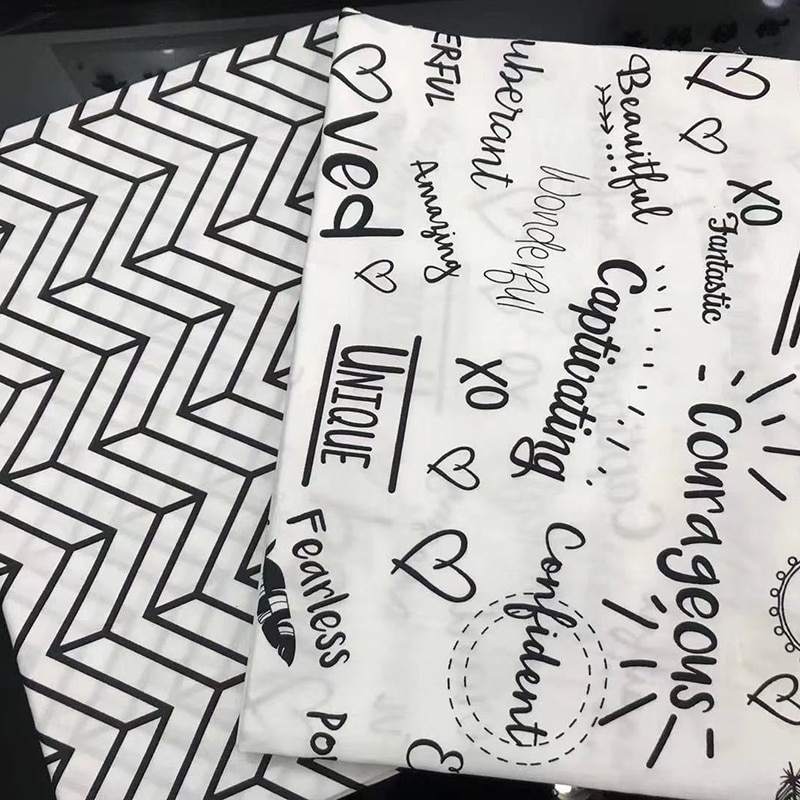 XO
Fantastic
Courageous
Beautiful
Captivating
Wonderful
uberant
Confident
XO
Amazing
ERFUL
UNIQUE
ved
Fearless